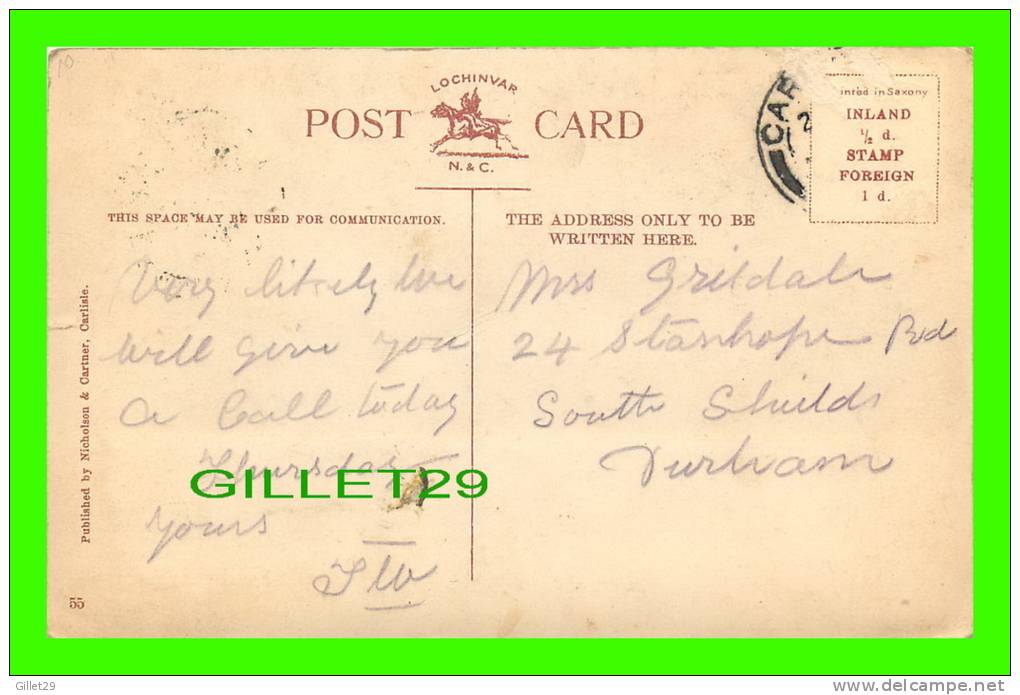 LOCHINVAR
POST CARD
N. & C.
CAR
2
inted in Saxony
INLAND
½ d.
STAMP
FOREIGN
1 d.
THIS SPACE MAY BE USED FOR COMMUNICATION.
THE ADDRESS ONLY TO BE
WRITTEN HERE.
Very likely we
will give you
a Call today
Thursday
Yours
Mrs Grisdale
24 Stanhope Rd
South Shields
Durham
GILLET29
Published by Nicholson & Cartner, Carlisle.
55
10
Gillet29
delcampe.net